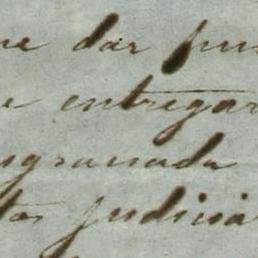 ne dar
e entregar
ngranada
tos judicia